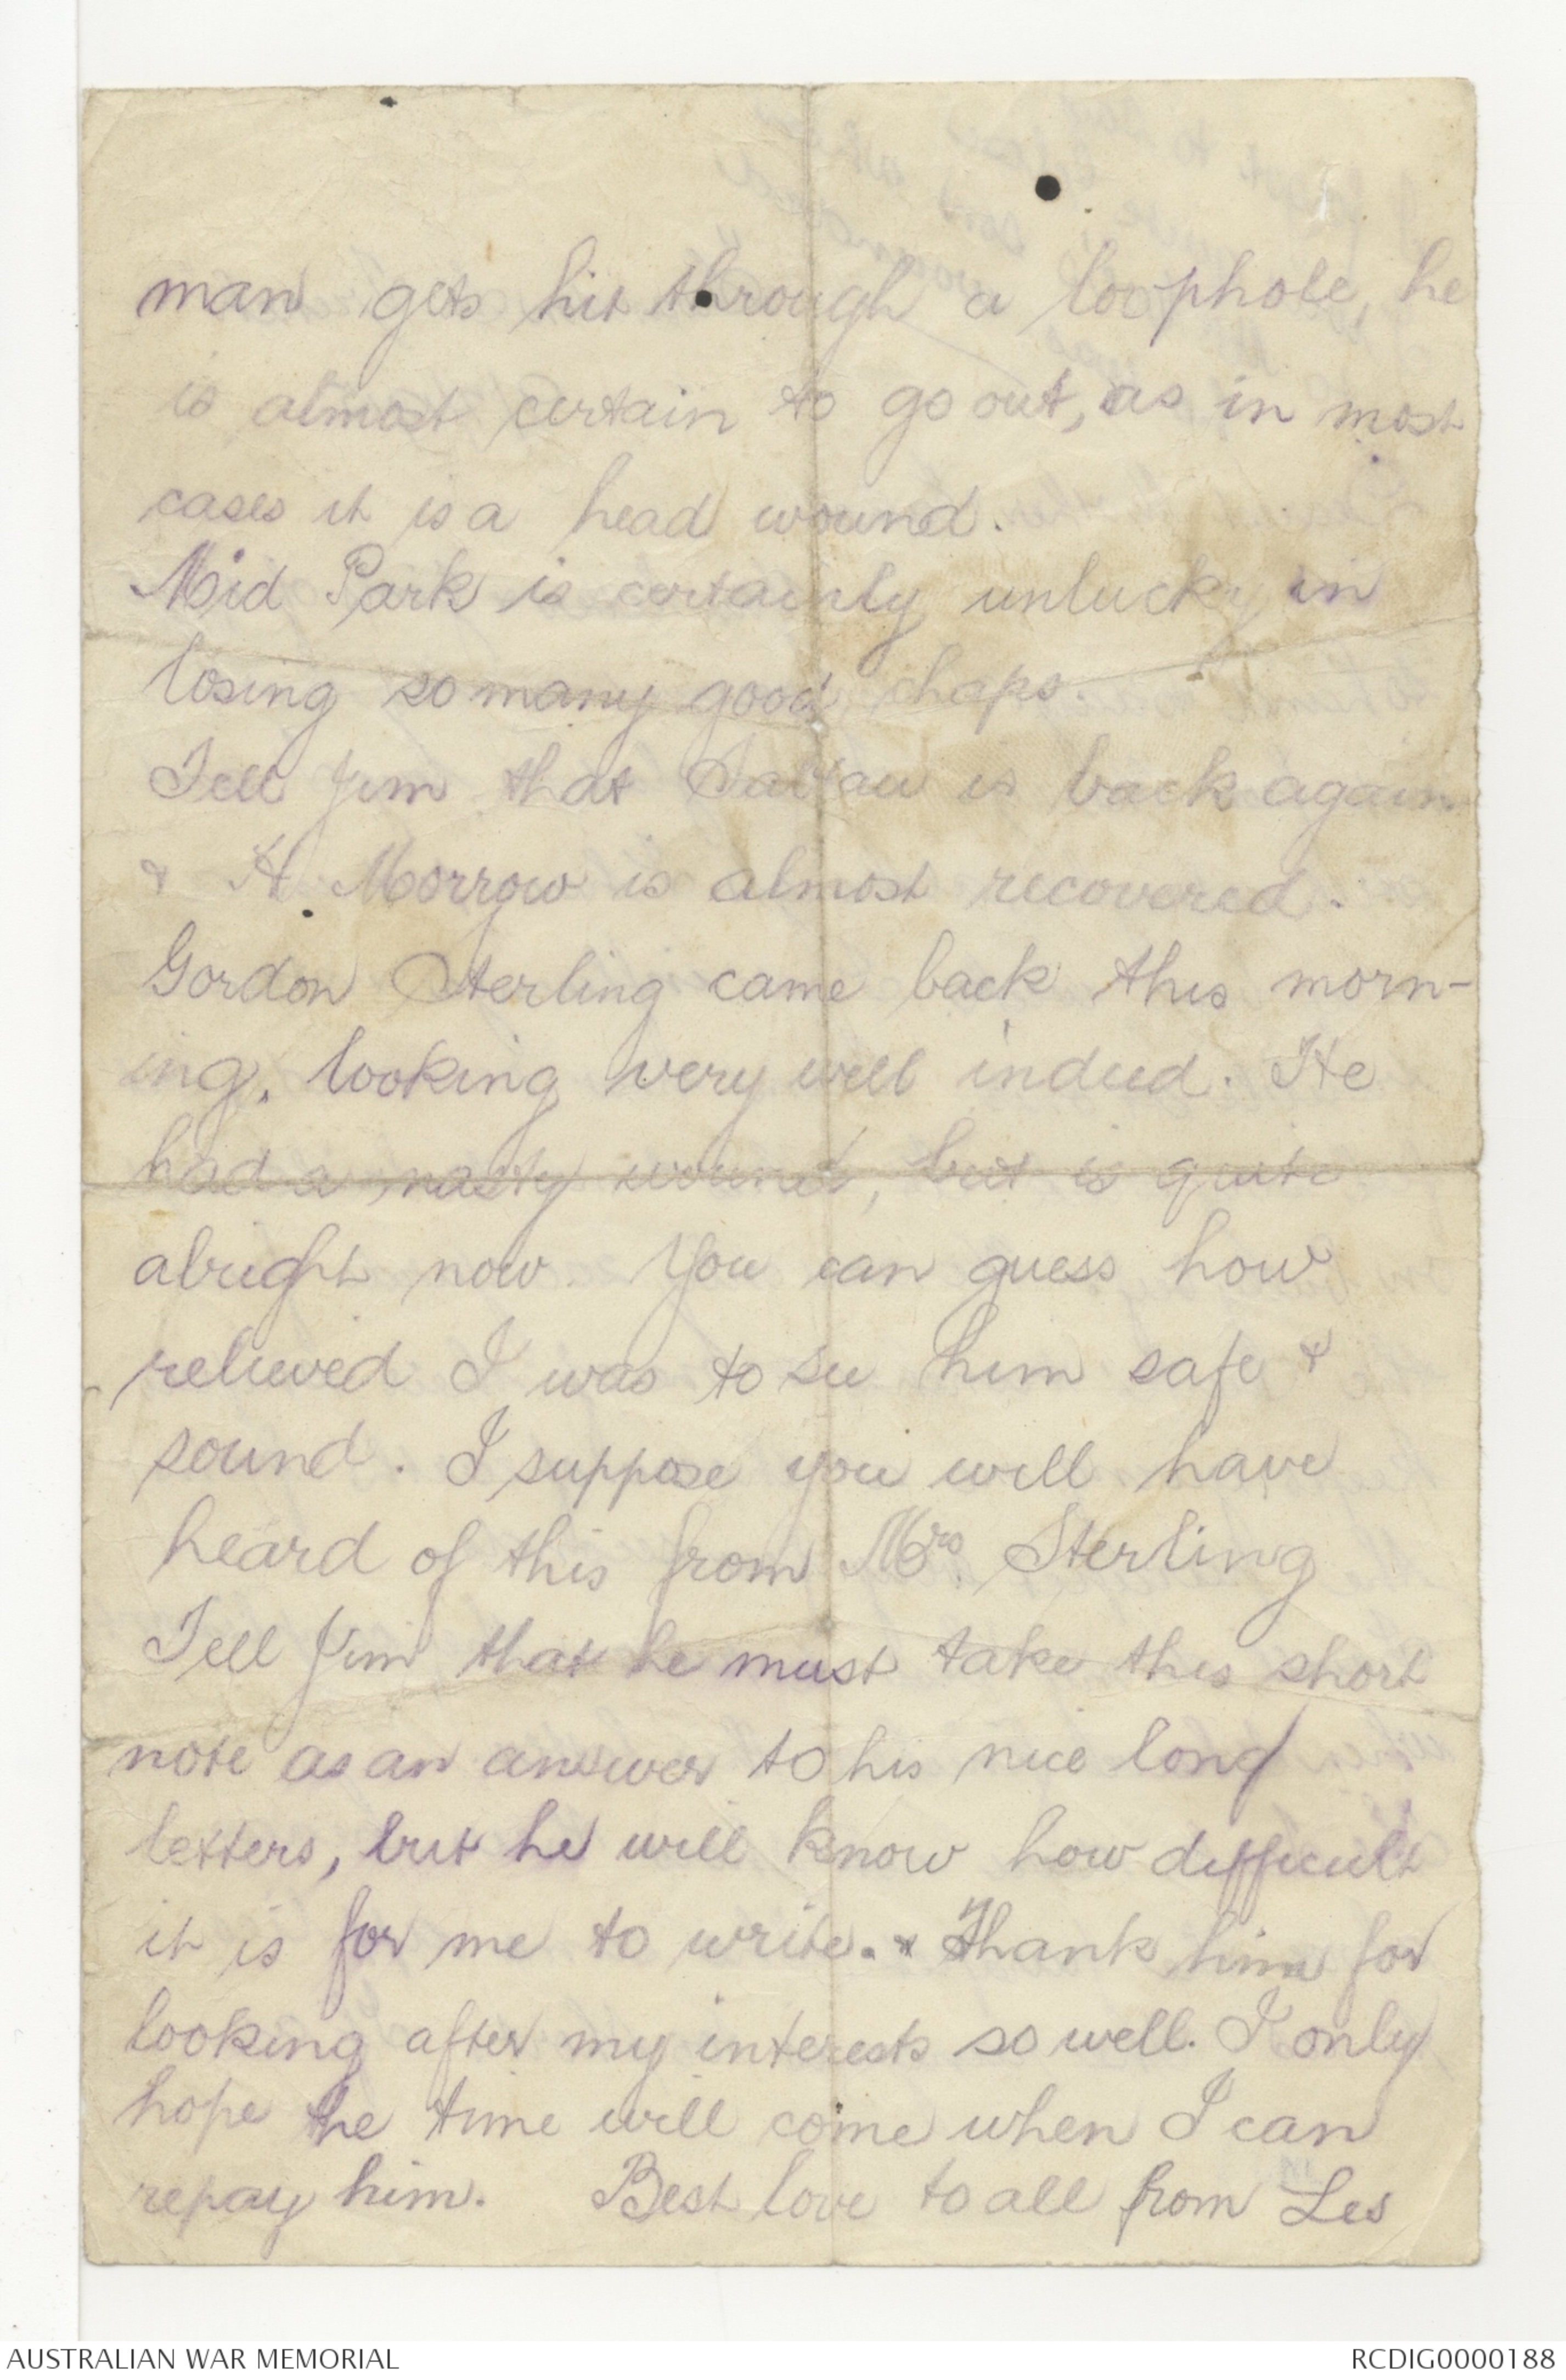 man gets hit through a loophole, he
is almost certain to go out, as in most
cases it is a head wound.
Mid Park is certainly unlucky in
losing so many good chaps.
Tell Jim that is back again
& H. Morrow is almost recovered.
Gordon Sterling came back this morn-
ing, looking very well indeed. He
had a nasty wound, but is quite
alright now. You can guess how
relieved I was to see him safe &
sound. I suppose you will have
heard of this from Mrs. Sterling
Tell Jim that he must take this short
note as an answer to his nice long
letters, but he will know how difficult
it is for me to write. & Thank him for
looking after my interests so well. I only
hope the time will come when I can
repay him. Best love to all from Les
AUSTRALIAN WAR MEMORIAL
RCDIG0000188